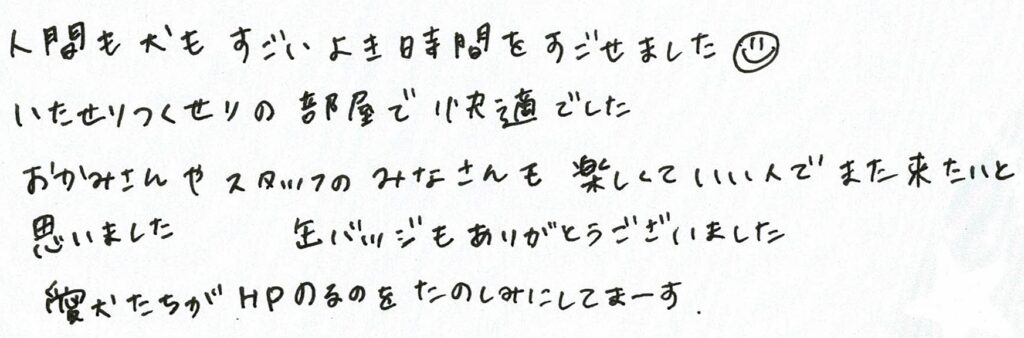 人間も犬も すごい よき時間を すごせました
いたせりつくせりの 部屋で 快適でした
おかみさんや スタッフの みなさんも 楽しくて いい人で また来たいと
思いました 缶バッジも ありがとうございました
愛犬たちが HPのるのを たのしみにしてまーす.